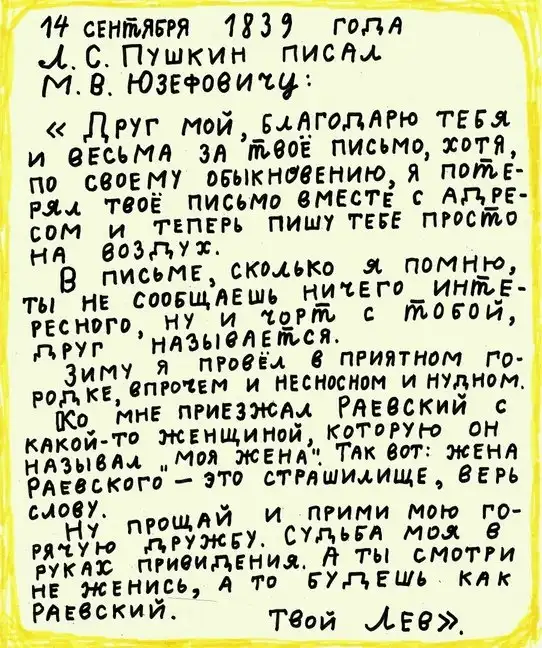 14 сентября 1839 года
Л. С. Пушкин писал
М. В. Юзефовичу:
« Друг мой, благодарю тебя
и весьма за твоё письмо, хотя,
по своему обыкновению, я поте-
рял твоё письмо вместе с адре-
сом и теперь пишу тебе просто
на воздух.
В письме, сколько я помню,
ты не сообщаешь ничего инте-
ресного, ну и чорт с тобой,
друг называется.
Зиму я провёл в приятном го-
родке, впрочем и несносном и нудном.
Ко мне приезжал Раевский с
какой-то женщиной, которую он
называл „моя жена". Так вот: жена
Раевского – это страшилище, верь
слову.
Ну прощай и прими мою го-
рячую дружбу. Судьба моя в
руках привидения. А ты смотри
не женись, а то будешь как
Раевский.
Твой Лев».